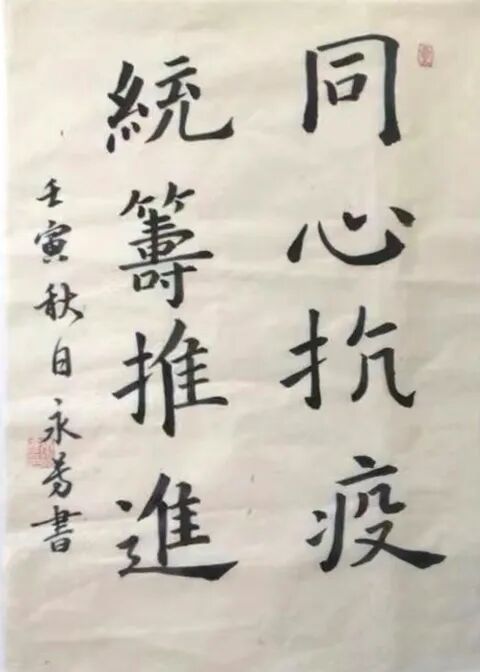 同心抗疫
統籌推進
壬寅秋日永芳書